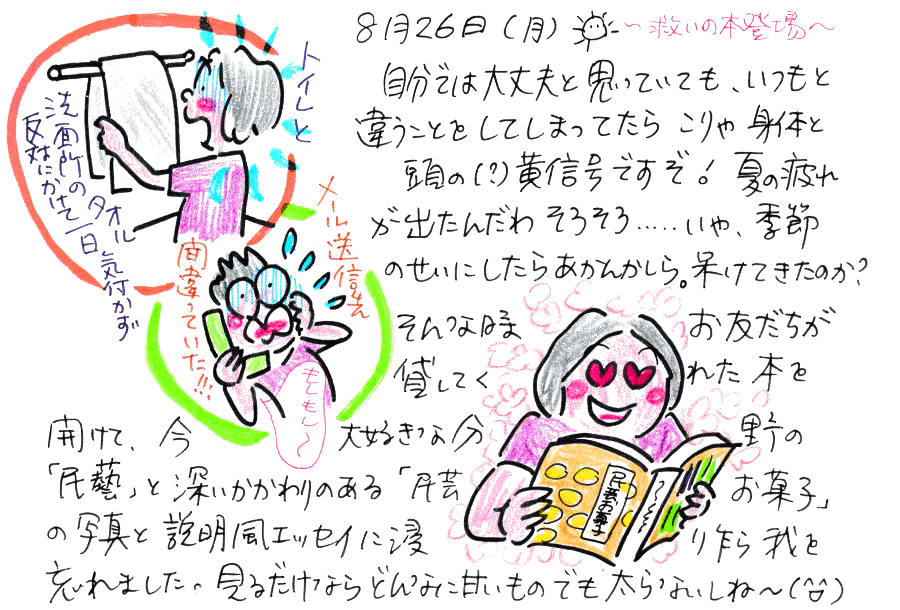 8月26日(月) ~救いの本登場~
自分では大丈夫と思っていても、いつもと
違うことをしてしまってたら こりゃ 身体と
頭の(?)黄信号ですぞ! 夏の疲れ
が出たんだわ そろそろ……いや、季節
のせいにしたらあかんかしら。呆けてきたのか?
そんな時 お友だちが
貸してく れた 本を
開けて、今 大好きな分 野の
「民藝」と深いかかわりのある「民芸 お菓子」
の写真と説明風エッセイに浸 り乍ら 我を
忘れました。見るだけならどんなに甘いものでも太らないしね~(^^)
トイレと
洗面所のタオル
反対にかけて一日気付かず
メール送信先
間違っていた!!!
もしもし~
民芸お菓子